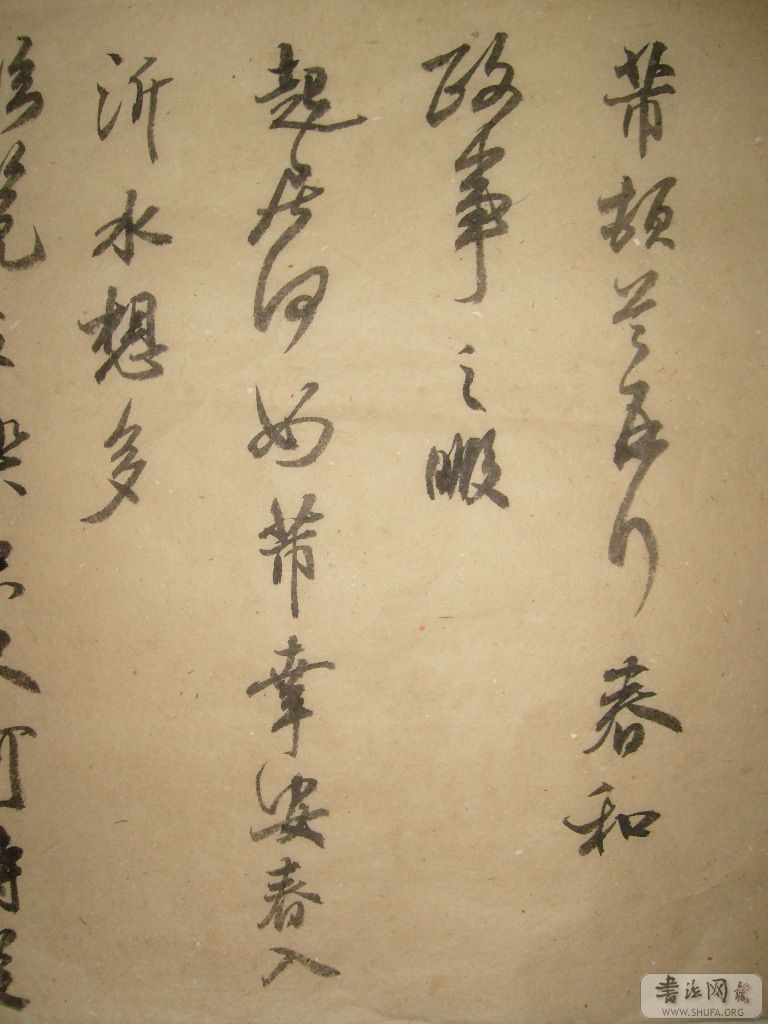 芾頓首再拜春和
政事之暇
起居何如芾幸安春入
沂水想多
書法网
WWW.SHUFA.ORG